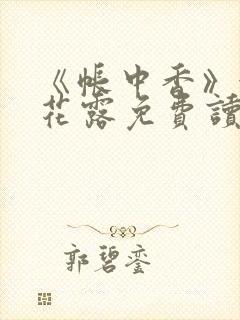 《帳中香》
花露免費讀
郭碧鑾